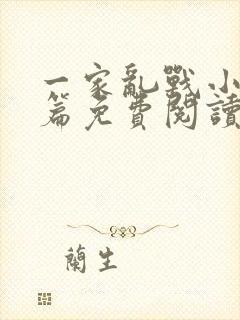 一家亂戰小
篇免費閱讀
蘭生